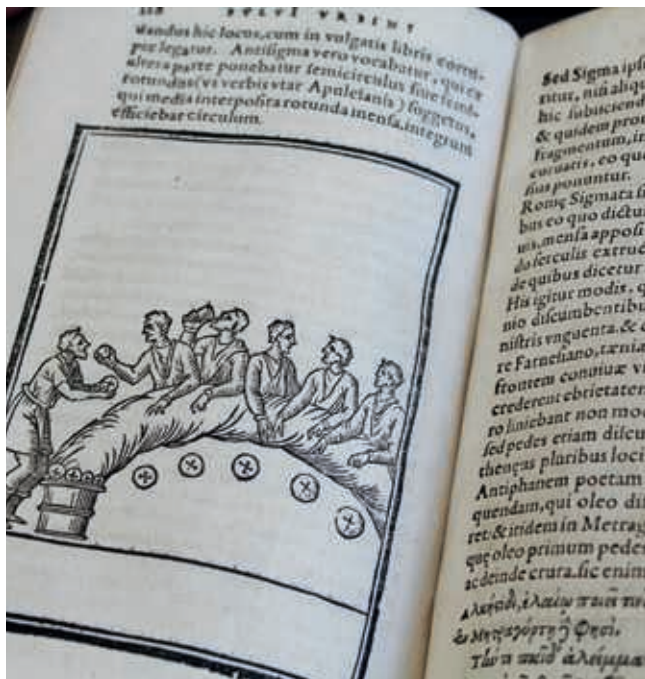 FVLVI VRSINI
dandus hic locus, cum in vulgatis libris corru-
pte legatur. Antisigma vero vocabatur, qui ex
altera parte ponebatur semicirculus siue semi-
rotundas (vt verbis vtar Apuleianis) suggestus,
qui media interposita rotunda mensa, integrum
efficiebat circulum.
Sed Sigma ips
nitur, nisi aliq
hic subiiciend
& quidem pro
fragmentum, in
coruatis, eo qu
sius ponuntur.
Romę Sigmata si
bus eo quo dictu
uis, mensa apposi
do ferculis extruc
de quibus dicetur
His igitur modis, q
nio discumbentibu
nistris vnguenta. & c
re Farnesiano, tænia
frontem conuiuæ vi
crederent ebrietatem
ro liniebant non mod
sed pedes etiam discu
thenęus pluribus loci
Antiphanem poetam
quendam, qui oleo di
ret: & itidem in Metrag
quę oleo primum pedes
ac deinde crura. sic enim